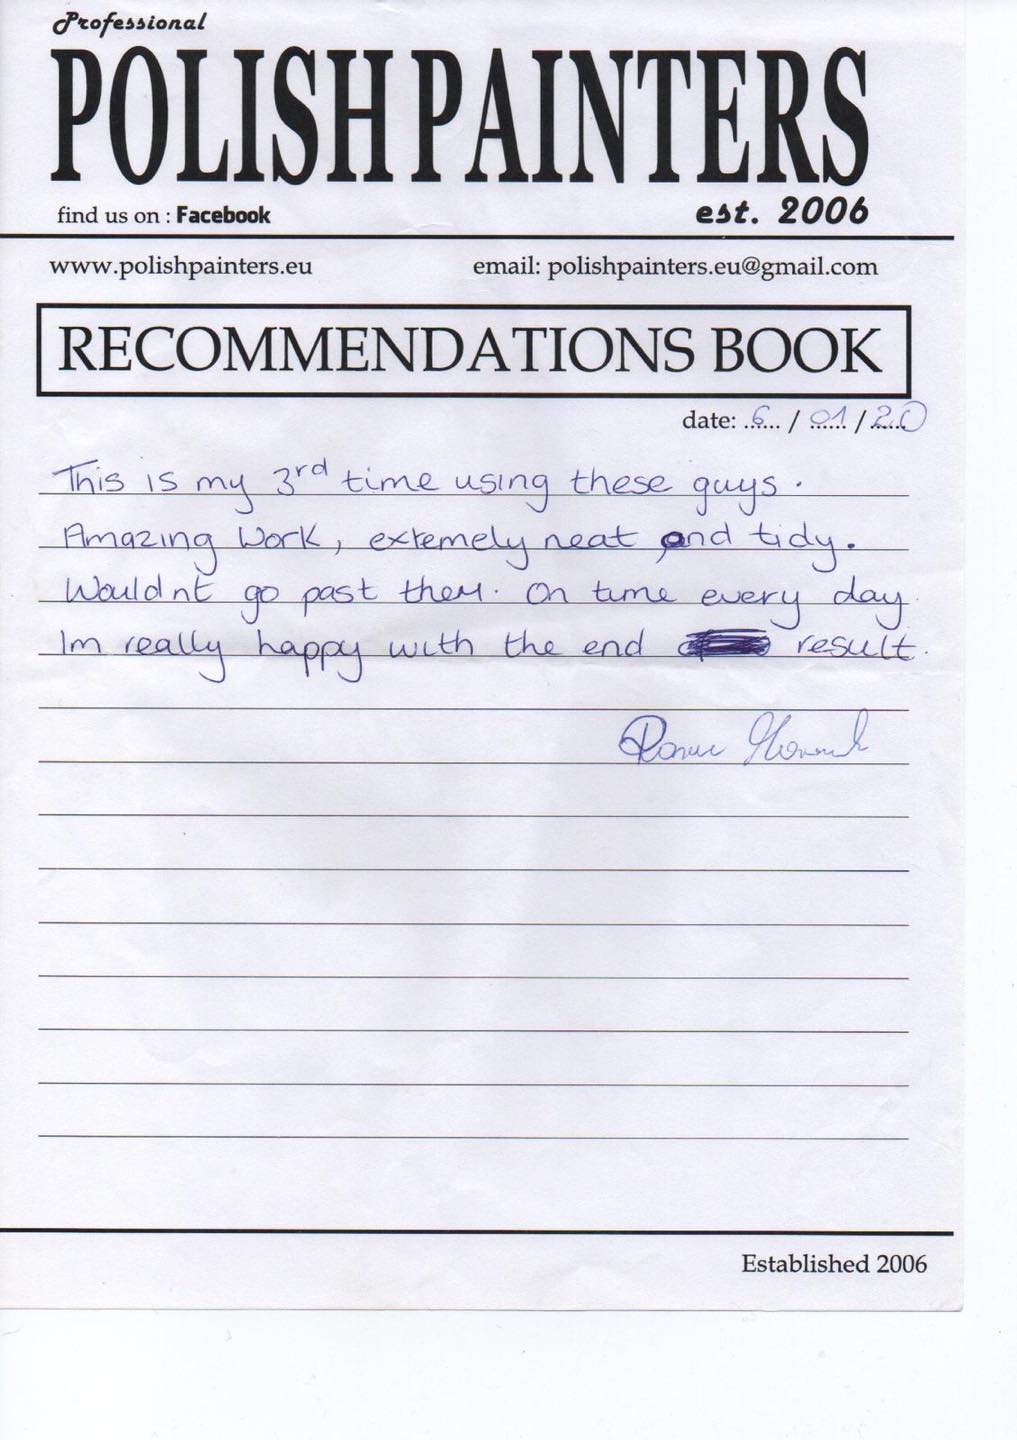 Professional
POLISH PAINTERS
find us on : Facebook
est. 2006
www.polishpainters.eu
email: polishpainters.eu@gmail.com
RECOMMENDATIONS BOOK
date: 6 / 01 / 20
This is my 3rd time using these guys.
Amazing Work, extemely neat and tidy.
Wouldnt go past them. On time every day.
Im really happy with the end result.
Established 2006